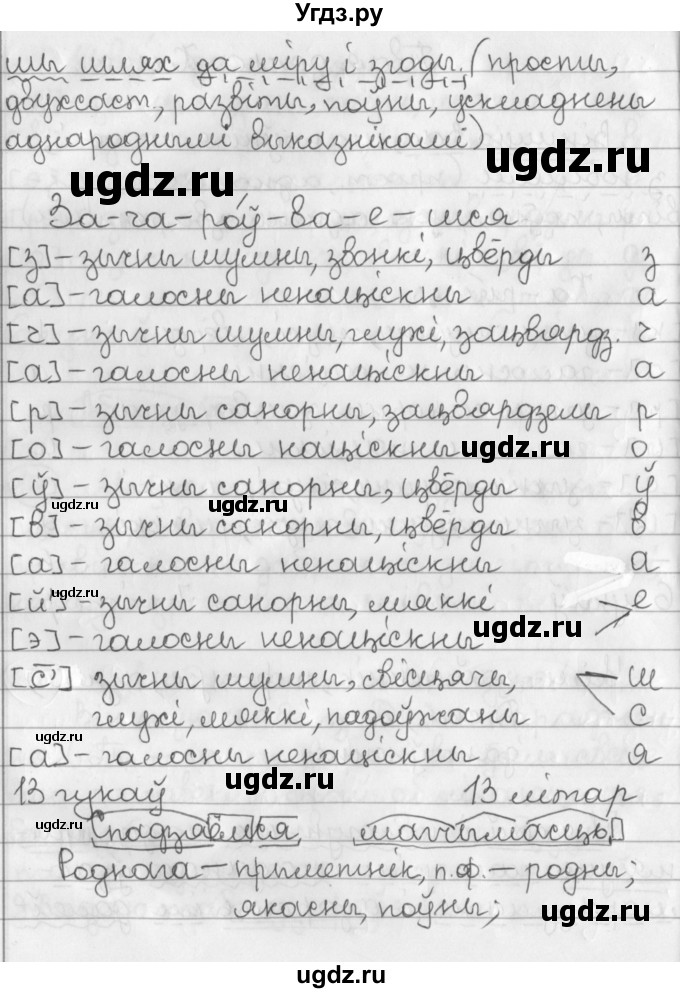 Угдз.ру
шы шлях да міру і згоды. (просты,
двухсаст., развіты, поўны, ускладнены
аднароднымі выказнікамі)
ugdz.ru ugdz.ru
За-ча-ро́ў-ва-е-шся
[з]-зычны шумны, звонкі, цвёрды з
[а]-галосны ненаціскны а
ugdz.ru
[ч]-зычны шумны, глухі, зацвярдз. ч
[а]-галосны ненаціскны а
[р]-зычны санорны, зацвярдзелы р
[о]-галосны націскны о
ugdz.ru
[ў]-зычны санорны, цвёрды ў
ugdz.ru ugdz.ru
[в]-зычны санорны, цвёрды в
[а]-галосны ненаціскны а
ugdz.ru
[й']-зычны санорны, мяккі е
ugdz.ru
[э]-галосны ненаціскны
[с'] зычны шумны, свісцячы, ш
глухі, мяккі, падоўжаны с
ugdz.ru
[а]-галосны ненаціскны я
ugdz.ru
13 гукаў 13 літар
ugdz.ru
магчымасць
Роднага-прыметнік, п.ф.-родны;
якасны, поўны;
ugdz.ru
ugdz.ru